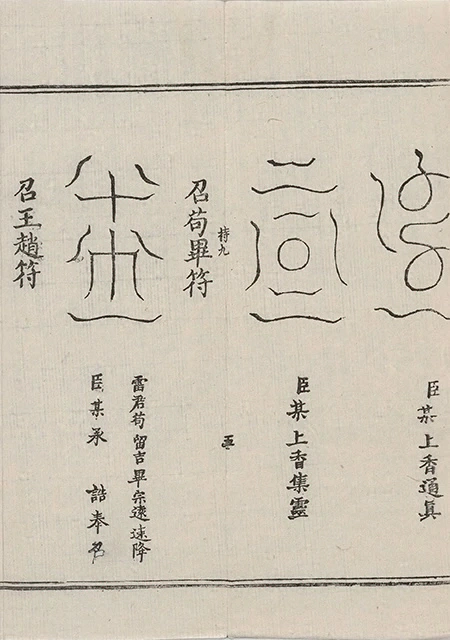 臣某上香通真
臣某上香集靈
持九
五
召苟畢符
雷君苟留吉畢宗遠速降
臣某承誥奉召
召王趙符